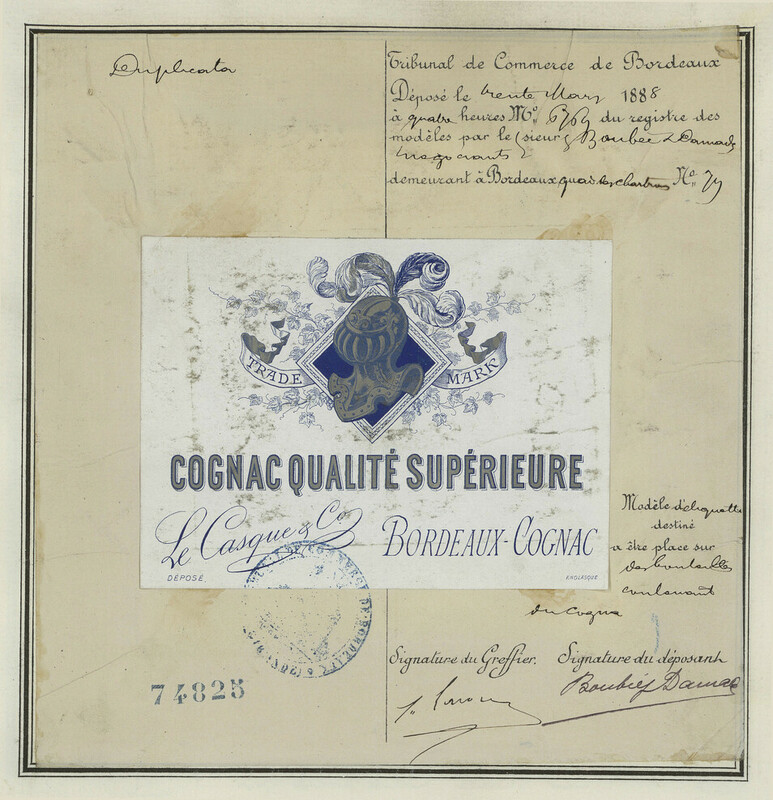 Duplicata
Tribunal de Commerce de Bordeaux
Déposé le trente Mars 1888
à quatre heures Mo. 6763 du registre des
modèles par le sieur Boubée & Damade
négociants
demeurant à Bordeaux quai des Chartrons No. 79
TRADE MARK
COGNAC QUALITÉ SUPÉRIEURE
Le Casque & Co
BORDEAUX-COGNAC
DÉPOSÉ.
Modèle d'étiquette
destiné
a être place sur
des bouteilles
contenant
du Cogna
Signature du Greffier. Signature du déposant
74825